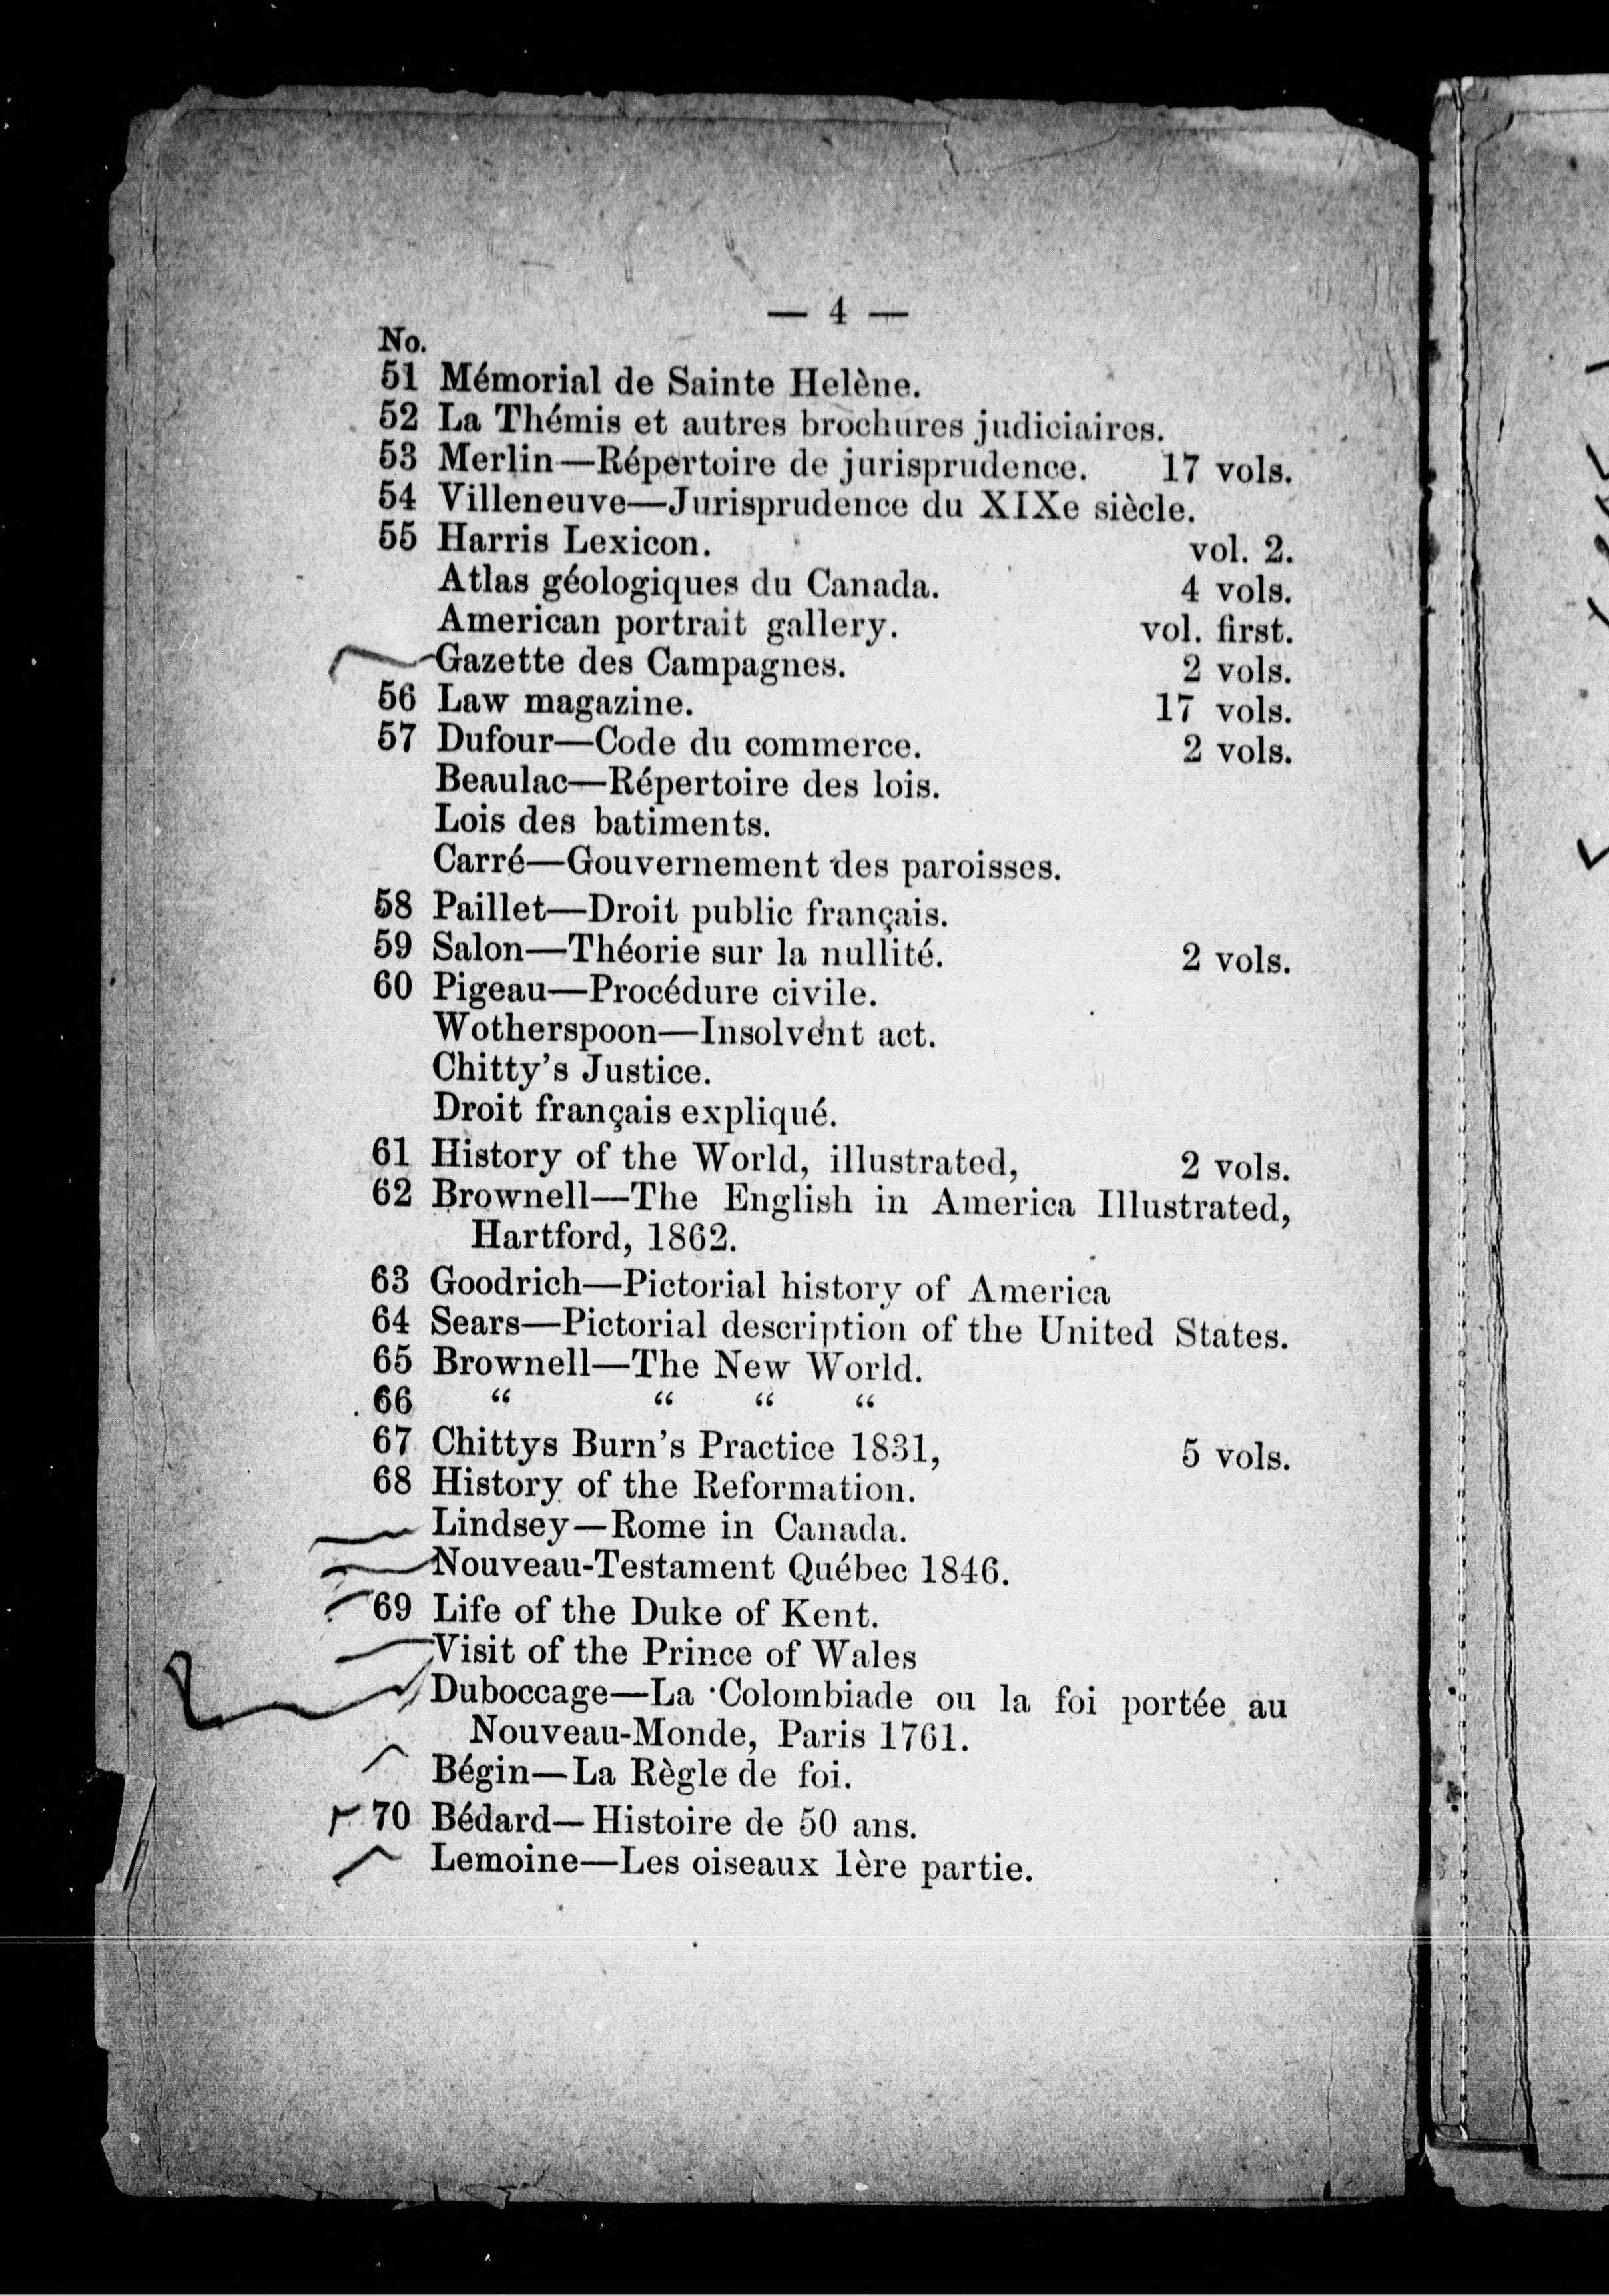 — 4 —
No.
51 Mémorial de Sainte Helène.
52 La Thémis et autres brochures judiciaires.
53 Merlin—Répertoire de jurisprudence. 17 vols.
54 Villeneuve—Jurisprudence du XIXe siècle.
55 Harris Lexicon. vol. 2.
Atlas géologiques du Canada. 4 vols.
American portrait gallery. vol. first.
Gazette des Campagnes. 2 vols.
56 Law magazine. 17 vols.
57 Dufour—Code du commerce. 2 vols.
Beaulac—Répertoire des lois.
Lois des batiments.
Carré—Gouvernement des paroisses.
58 Paillet—Droit public français.
59 Salon—Théorie sur la nullité. 2 vols.
60 Pigeau—Procédure civile.
Wotherspoon—Insolvent act.
Chitty's Justice.
Droit français expliqué.
61 History of the World, illustrated, 2 vols.
62 Brownell—The English in America Illustrated,
Hartford, 1862.
63 Goodrich—Pictorial history of America
64 Sears—Pictorial description of the United States.
65 Brownell—The New World.
66 “ “ “ “
67 Chittys Burn's Practice 1831, 5 vols.
68 History of the Reformation.
Lindsey—Rome in Canada.
Nouveau-Testament Québec 1846.
69 Life of the Duke of Kent.
Visit of the Prince of Wales
Duboccage—La Colombiade ou la foi portée au
Nouveau-Monde, Paris 1761.
Bégin—La Règle de foi.
70 Bédard—Histoire de 50 ans.
Lemoine—Les oiseaux 1ère partie.